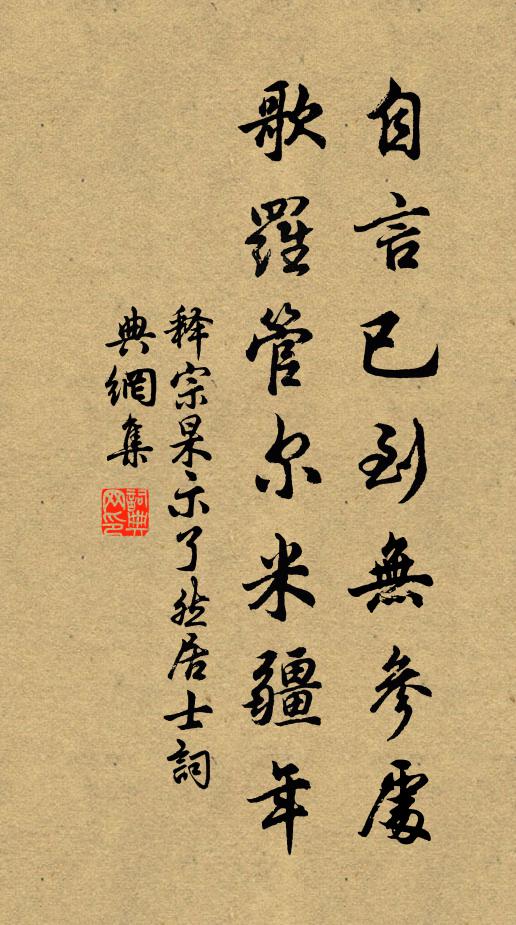 自言已到無參處
歌羅管尔米疆年
释宗杲示了然居士詞
典網集
詞典
网印